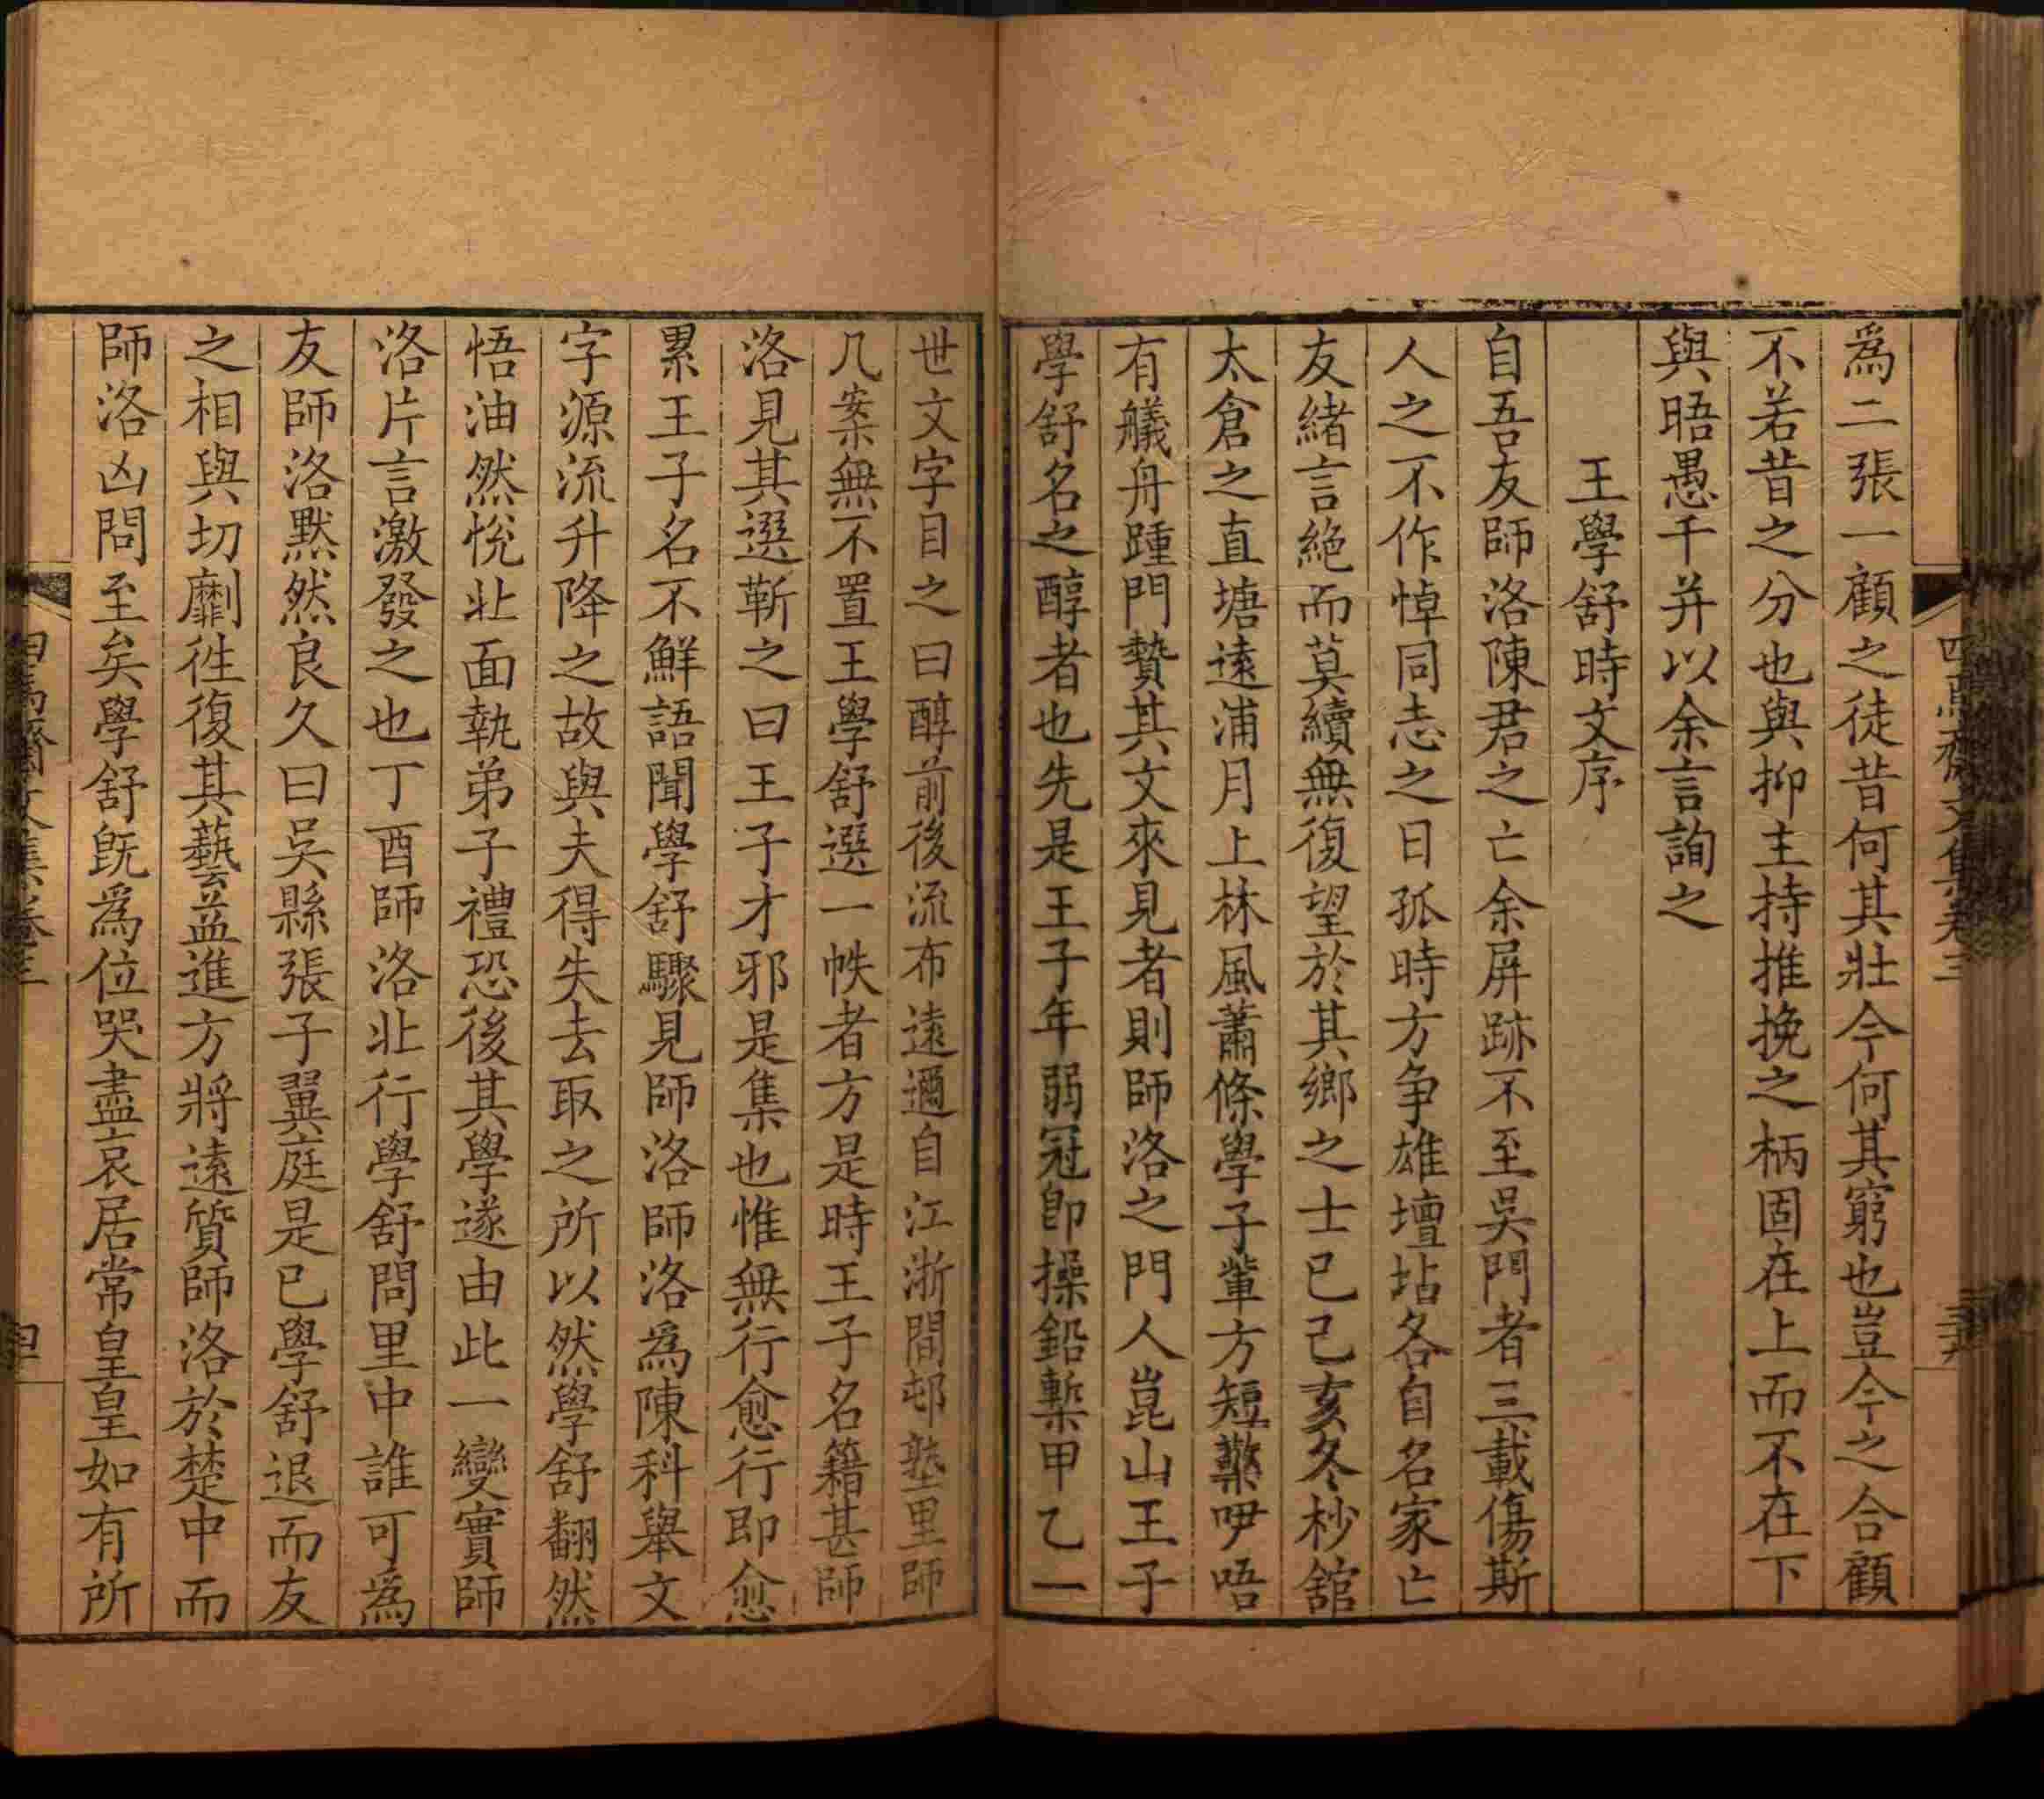 爲二張一顧之徒昔何其壯今何其窮也豈今之合顧
不若昔之分也與抑主持推挽之柄固在上而不在下
與晤愚千并以余言詢之
王學舒時文序
自吾友師洛陳君之亡余屏跡不至吳門者三載傷斯
人之不作悼同志之日孤時方争雄壇坫各自名家亡
友緒言絶而莫續無復望於其鄉之士已己亥冬杪舘
太倉之直塘遠浦月上林風蕭條學子輩方短檠咿唔
有艤舟踵門贄其文來見者則師洛之門人崑山王子
學舒名之醇者也先是王子年弱冠卽操鉛槧甲乙一
世文字目之曰醇前後流布遠邇自江浙間邨塾里師
几案無不置王學舒選一帙者方是時王子名籍甚師
洛見其選蘄之曰王子才邪是集也惟無行愈行即愈
累王子名不鮮語聞學舒驟見師洛師洛爲陳科舉文
字源流升降之故與夫得失去取之所以然學舒翻然
悟油然悅北面執弟子禮恐後其學遂由此一變實師
洛片言激發之也丁酉師洛北行學舒問里中誰可爲
友師洛默然良久曰吳縣張子翼庭是已學舒退而友
之相與切劘徃復其藝益進方將遠質師洛於楚中而
師洛凶問至矣學舒旣爲位哭盡哀居常皇皇如有所
四焉齋文集卷三